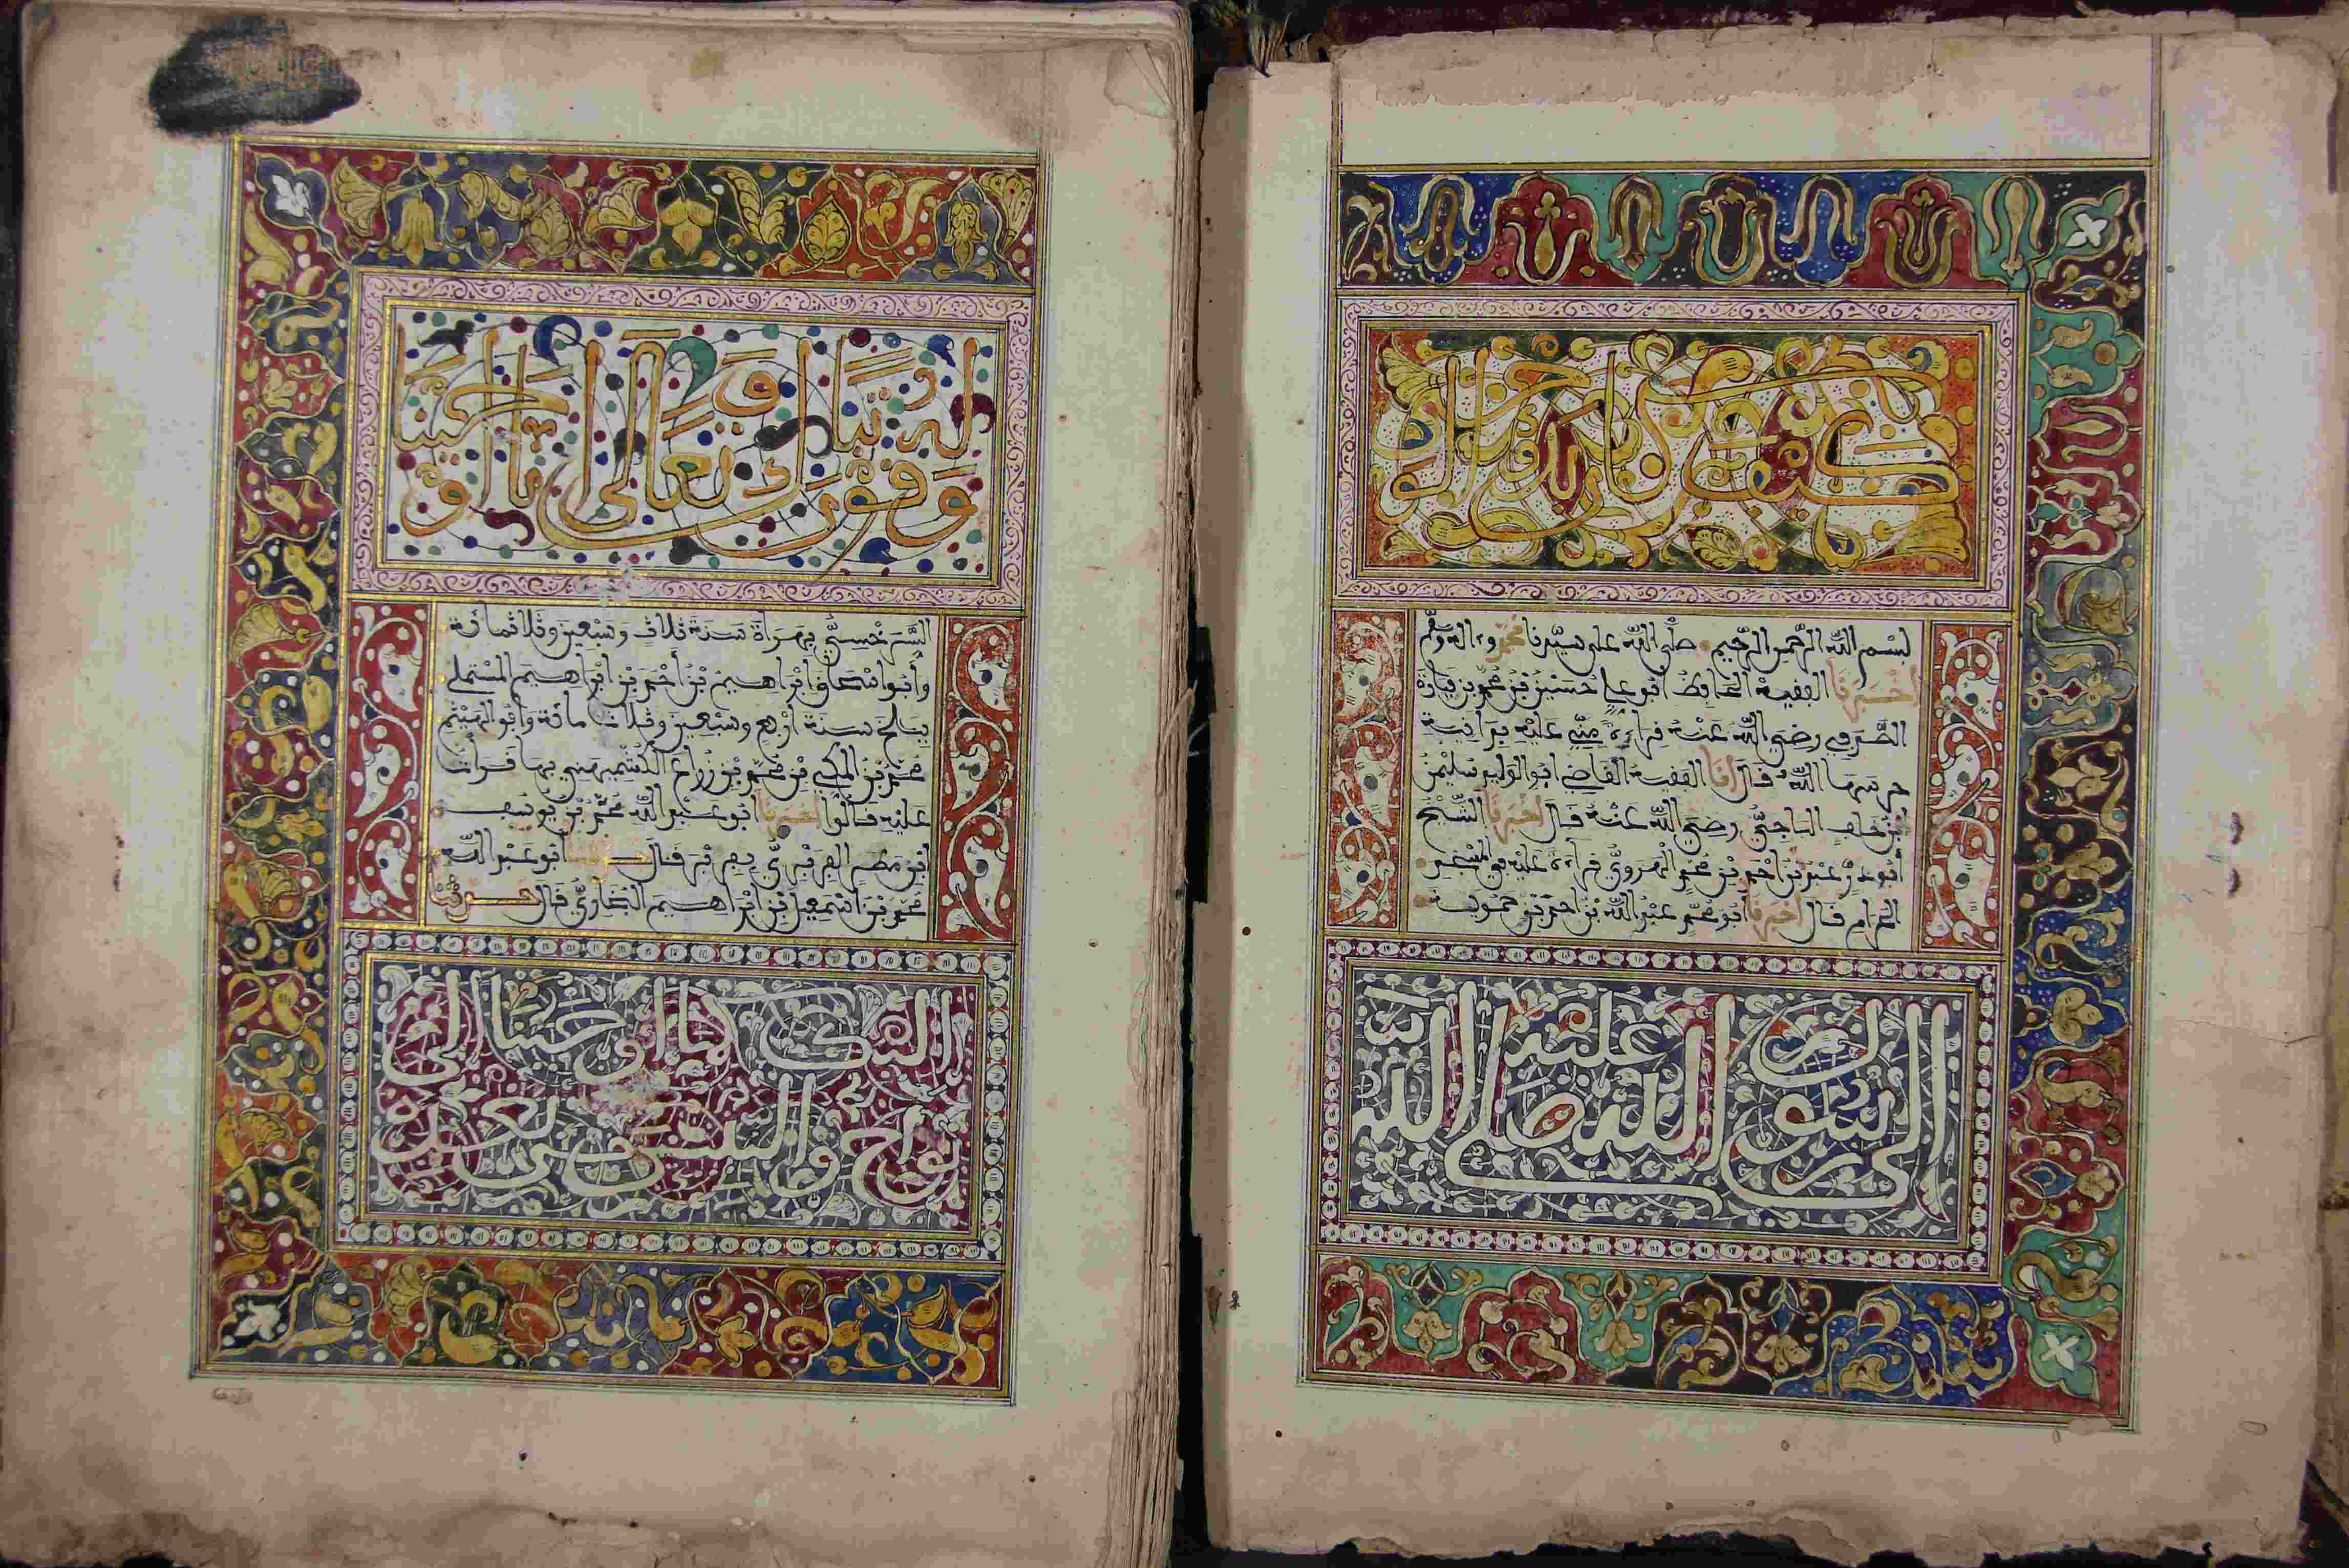 كيف كان بدء الوحي
بسم الله الرحمن الرحيم صلى الله على سيدنا محمد وءاله وسلم
اخبرنا الفقيه الحافظ ابو علي حسين بن محمد بن فيارة
الصدفي رضي الله عنه قراءة مني عليه بدانية
حرسها الله قال انا الفقيه القاضي ابو الوليد سليمن
بن خلف الباجي رضي الله عنه قال اخبرنا الشيخ
ابو ذر عبد بن احمد بن محمد الهروي قراءة عليه في المسجد
الحرام قال اخبرنا ابو محمد عبد الله بن احمد بن حموية
الى رسول الله صلى الله عليه
وقول الله تبارك وتعالى انا اوحينا
السرخسي بهراة سنة ثلاث وسبعين وثلاثمائة
وابو اسحاق ابراهيم بن احمد بن ابراهيم المستملي
ببلخ سنة اربع وسبعين وثلاث مائة وابو الهيثم
محمد بن المكي بن محمد بن زراع الكشميهني بها قرات
عليه قالوا اخبرنا ابو عبد الله محمد بن يوسف
ابن مطر الفربري بفربر قال ابو عبد الله
محمد بن اسمعيل بن ابراهيم البخاري قال حدثنا
اليك كما اوحينا الى
نوح والنبيين من بعده